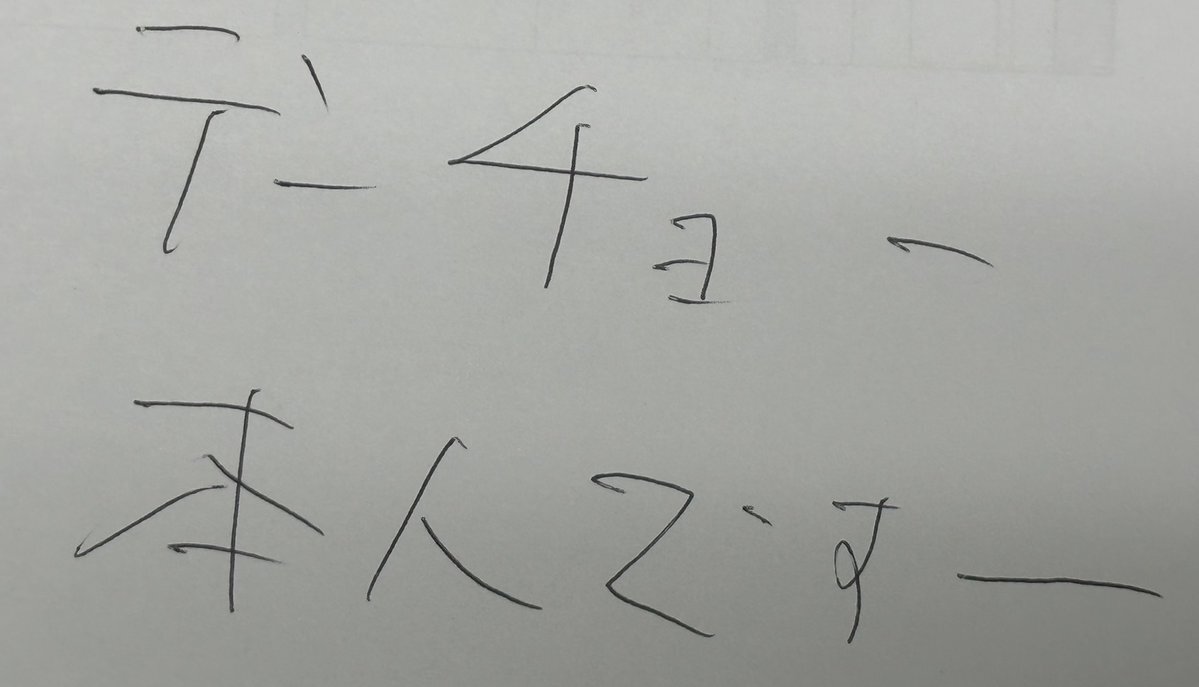 デーチョー
本人ですー